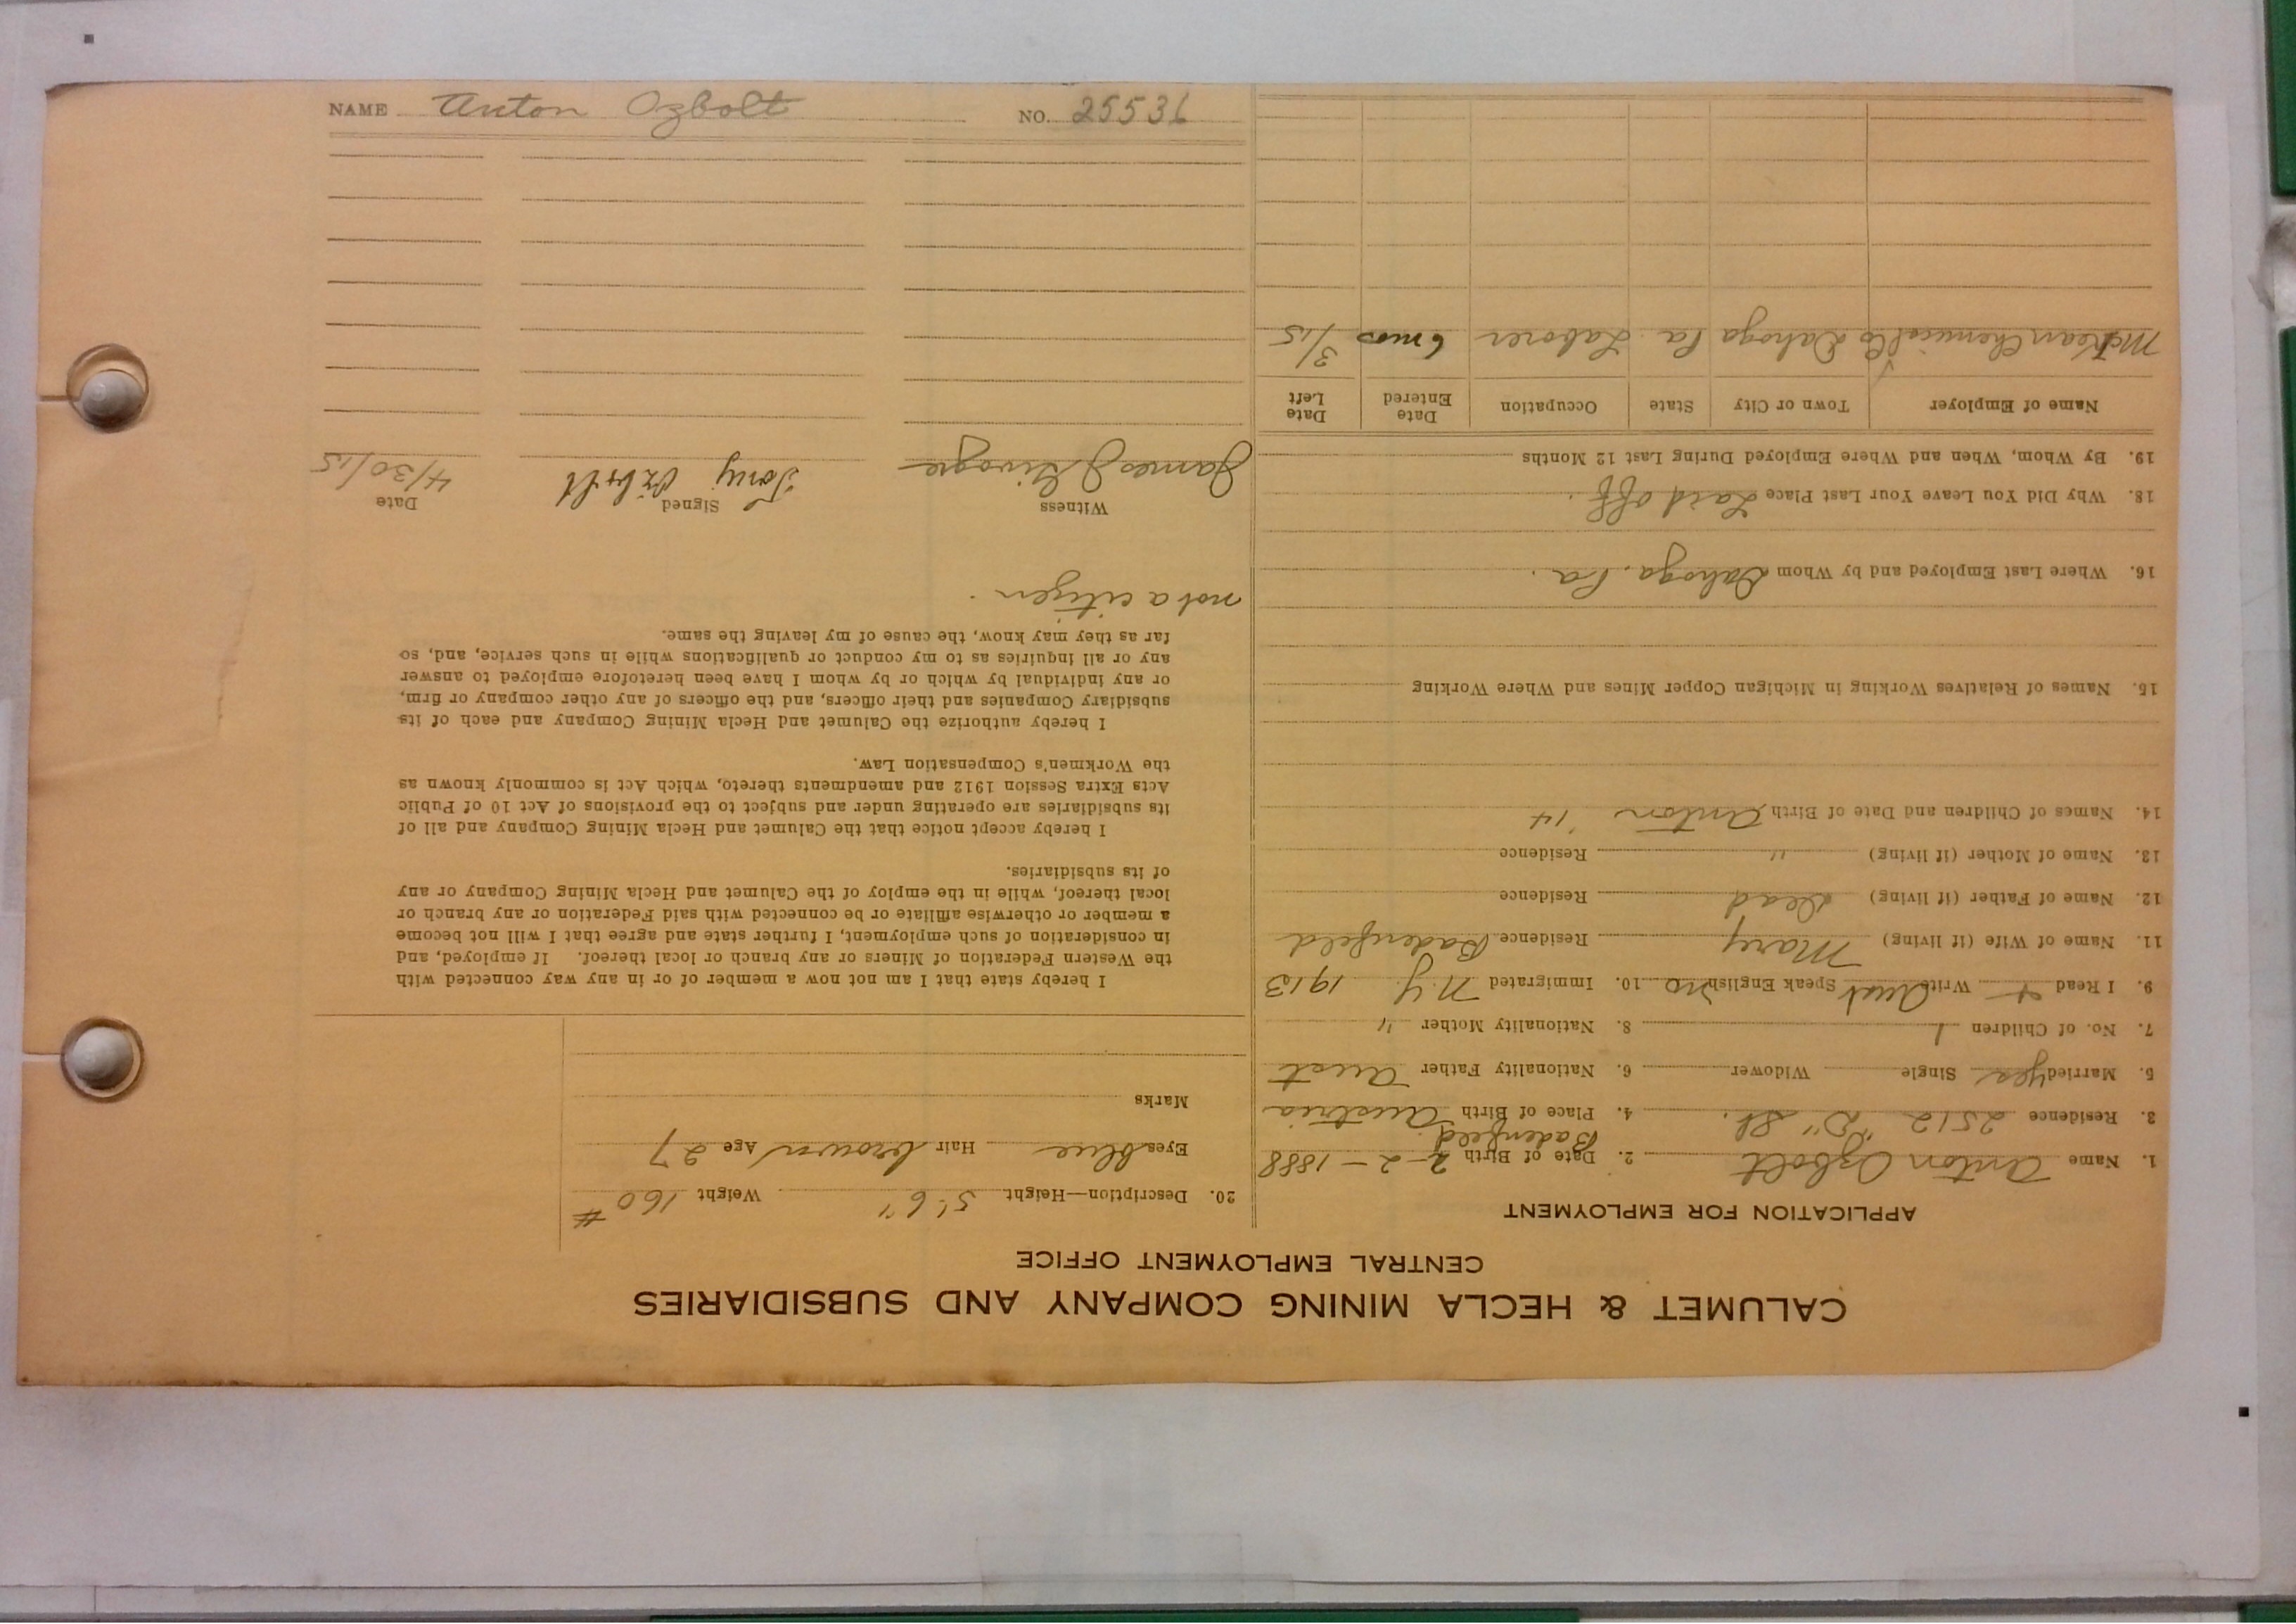 CALUMET & HECLA MINING COMPANY AND SUBSIDIARIES
CENTRAL EMPLOYMENT OFFICE
APPLICATION FOR EMPLOYMENT
1. Name Anton Ozbolt 2. Date of Birth 2-2-1888
3. Residence 2512 "D" St. 4. Place of Birth Austria Badenfeld.
5. Married yes Single Widower 6. Nationality Father Aust
7. No. of Children 1 8. Nationality Mother "
9. I Read + Write Aust Speak English no 10. Immigrated N.Y. 1913
11. Name of Wife (if living) Mary Residence Badenfeld
12. Name of Father (if living) Dead Residence
13. Name of Mother (if living) " Residence
14. Names of Children and Date of Birth Anton '14
15. Names of Relatives Working in Michigan Copper Mines and Where Working
16. Where Last Employed and by Whom Dahoga, Pa.
18. Why Did You Leave Your Last Place Laid off.
19. By Whom, When and Where Employed During Last 12 Months
Name of Employer Town or City State Occupation Date Entered Date Left
McKean Chemical Co Dahoga Pa Laborer 6 mos 3/15
20. Description—Height 5' 6" Weight 160 #
Eyes blue Hair brown Age 27
Marks
I hereby state that I am not now a member of or in any way connected with
the Western Federation of Miners or any branch or local thereof. If employed, and
in consideration of such employment, I further state and agree that I will not become
a member or otherwise affiliate or be connected with said Federation or any branch or
local thereof, while in the employ of the Calumet and Hecla Mining Company or any
of its subsidiaries.
I hereby accept notice that the Calumet and Hecla Mining Company and all of
its subsidiaries are operating under and subject to the provisions of Act 10 of Public
Acts Extra Session 1912 and amendments thereto, which Act is commonly known as
the Workmen's Compensation Law.
I hereby authorize the Calumet and Hecla Mining Company and each of its
subsidiary Companies and their officers, and the officers of any other company or firm,
or any individual by which or by whom I have been heretofore employed to answer
any or all inquiries as to my conduct or qualifications while in such service, and, so
far as they may know, the cause of my leaving the same.
not a citizen.
Witness Signed Date
James J Tony Ozbolt 4/30/15
NAME Anton Ozbolt NO. 25536